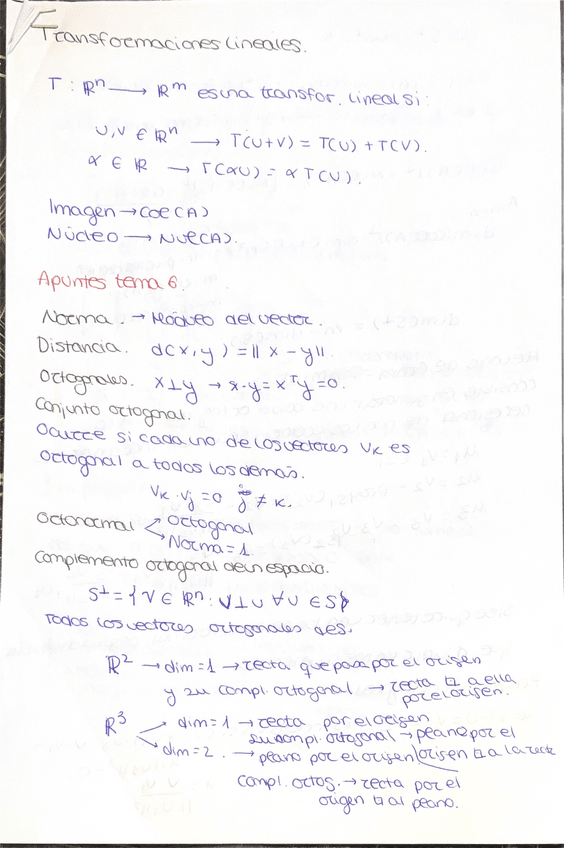 Transformaciones Lineales.
T : ℝⁿ → ℝᵐ es una transfor. lineal si:
u,v ∈ ℝⁿ → T(u+v) = T(u) + T(v).
α ∈ ℝ → T(αu) = α T(u).
Imagen → Col(A)
Núcleo → Nul(A).
Apuntes tema 6.
Norma. → Módulo del vector.
Distancia. d(x,y) = ||x - y||.
Ortogonales. x⊥y → x·y = xᵀy = 0.
Conjunto ortogonal.
Ocurre si cada uno de los vectores vₖ es
ortogonal a todos los demás.
vₖ · vⱼ = 0 j ≠ k.
Ortonormal < Ortogonal
Norma = 1.
Complemento ortogonal de un espacio.
S⊥ = { v ∈ ℝⁿ : v⊥u ∀ u ∈ S}
Todos los vectores ortogonales de S.
ℝ² → dim = 1 → recta que pasa por el origen
y su compl. ortogonal → recta ⊥ a ella
por el origen.
ℝ³ → dim = 1 → recta por el origen
su compl. ortogonal → plano por el
origen ⊥ a la recta
→ dim = 2. → plano por el origen
compl. ortog. → recta por el
origen ⊥ al plano.